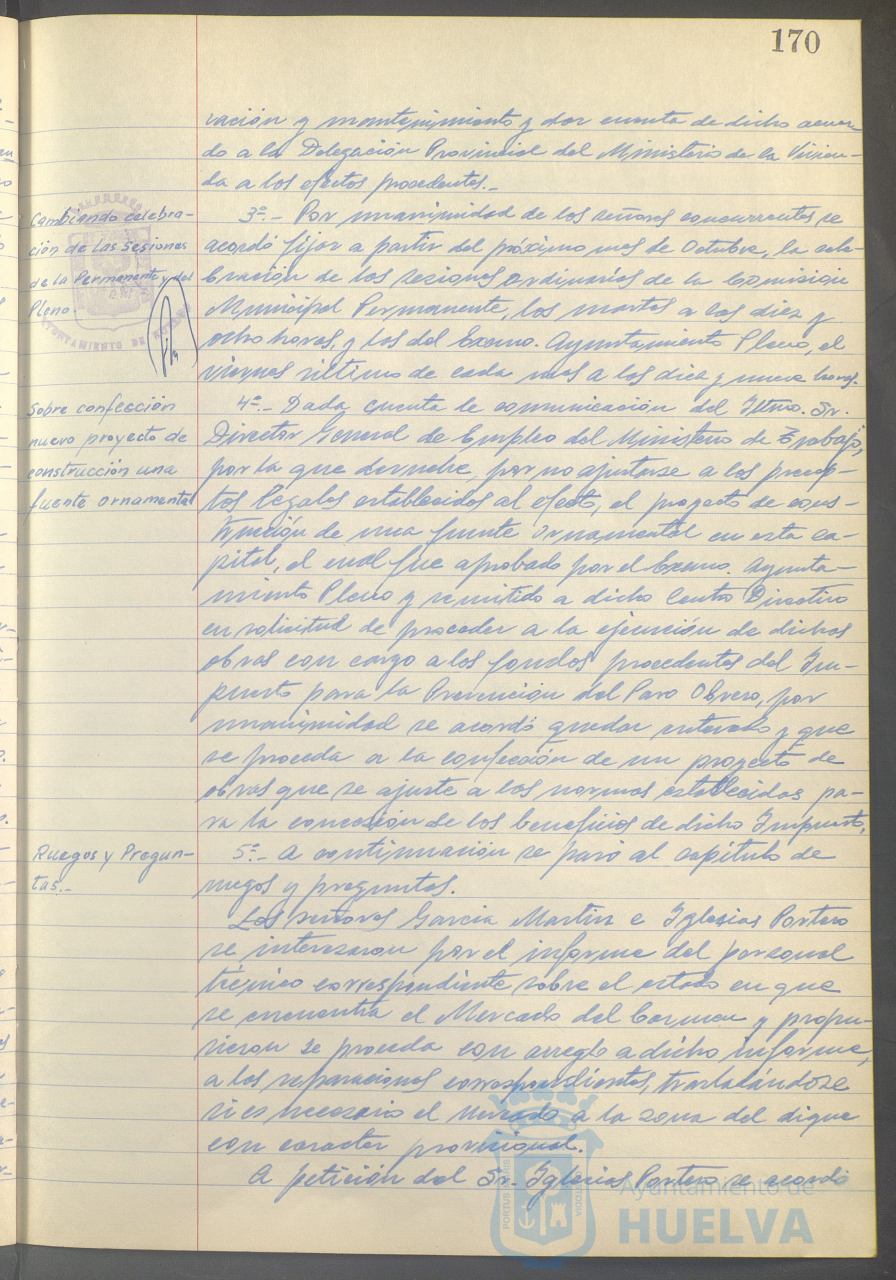 170
vación y mantenimiento y dar cuenta de dicho acuer-
do a la Delegación Provincial del Ministerio de la Vivien-
da a los efectos procedentes.-
Cambiando celebra-
ción de las Sesiones
de la Permanente y del
Pleno.
AYUNTAMIENTO DE
3º.- Por unanimidad de los señores concurrentes se
acordó fijar a partir del próximo mes de Octubre, la cele-
bración de las sesiones ordinarias de la Comisión
Municipal Permanente, los martes a las diez y
ocho horas, y las del Excmo. Ayuntamiento Pleno, el
viernes último de cada mes a las diez y nueve horas.
Sobre confección
nuevo proyecto de
construcción una
fuente ornamental
4º.- Dada cuenta de comunicación del Iltmo. Sr.
Director General de Empleo del Ministerio de Trabajo,
por la que devuelve, por no ajustarse a los precep-
tos legales establecidos al efecto, el proyecto de cons-
trucción de una fuente ornamental en esta ca-
pital, el cual fue aprobado por el Excmo. Ayunta-
miento Pleno y remitido a dicho Centro Directivo
en solicitud de proceder a la ejecución de dichas
obras con cargo a los fondos procedentes del Im-
puesto para la Prevención del Paro Obrero, por
unanimidad se acordó quedar enterado y que
se proceda a la confección de un proyecto de
obras que se ajuste a las normas establecidas pa-
ra la concesión de los beneficios de dicho Impuesto,
Ruegos y Pregun-
tas.-
5º.- A continuación se pasó al capítulo de
ruegos y preguntas.
Los señores Garcia Martin e Iglesias Portero
se interesaron por el informe del personal
técnico correspondiente sobre el estado en que
se encuentra el Mercado del Carmen y propu-
sieron se proceda con arreglo a dicho informe,
a las reparaciones correspondientes, trasladándose
si es necesario el Mercado a la zona del dique
con caracter provisional.
A petición del Sr. Iglesias Portero se acordó
Ayuntamiento de
HUELVA